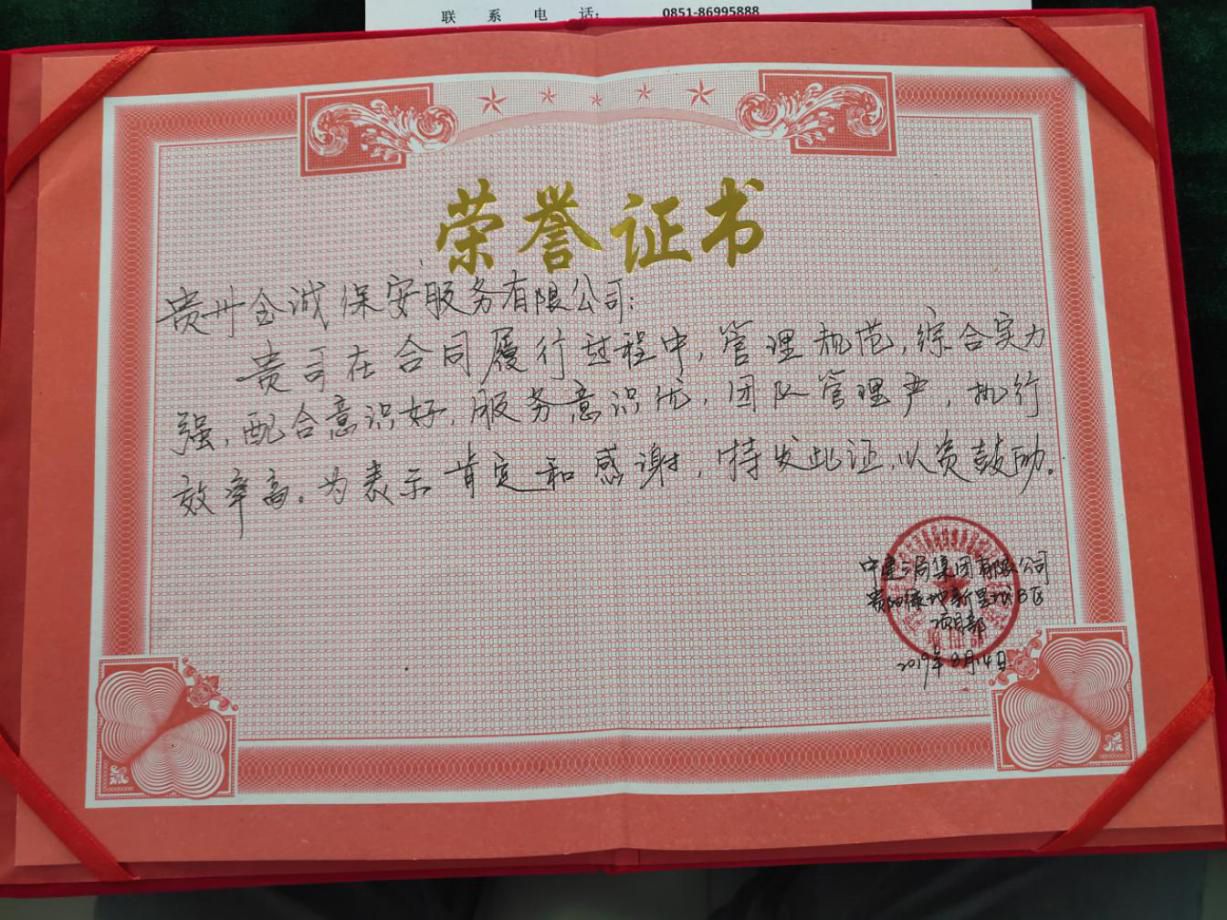 联系电话: 0851-86995888
荣誉证书
贵州金诚保安服务有限公司:
贵司在合同履行过程中,管理规范,综合实力
强,配合意识好,服务意识优,团队管理严,执行
效率高。为表示肯定和感谢,特发此证,以资鼓励。
中建二局集团有限公司
贵阳绿地新里城B区
项目部
2019年8月14日